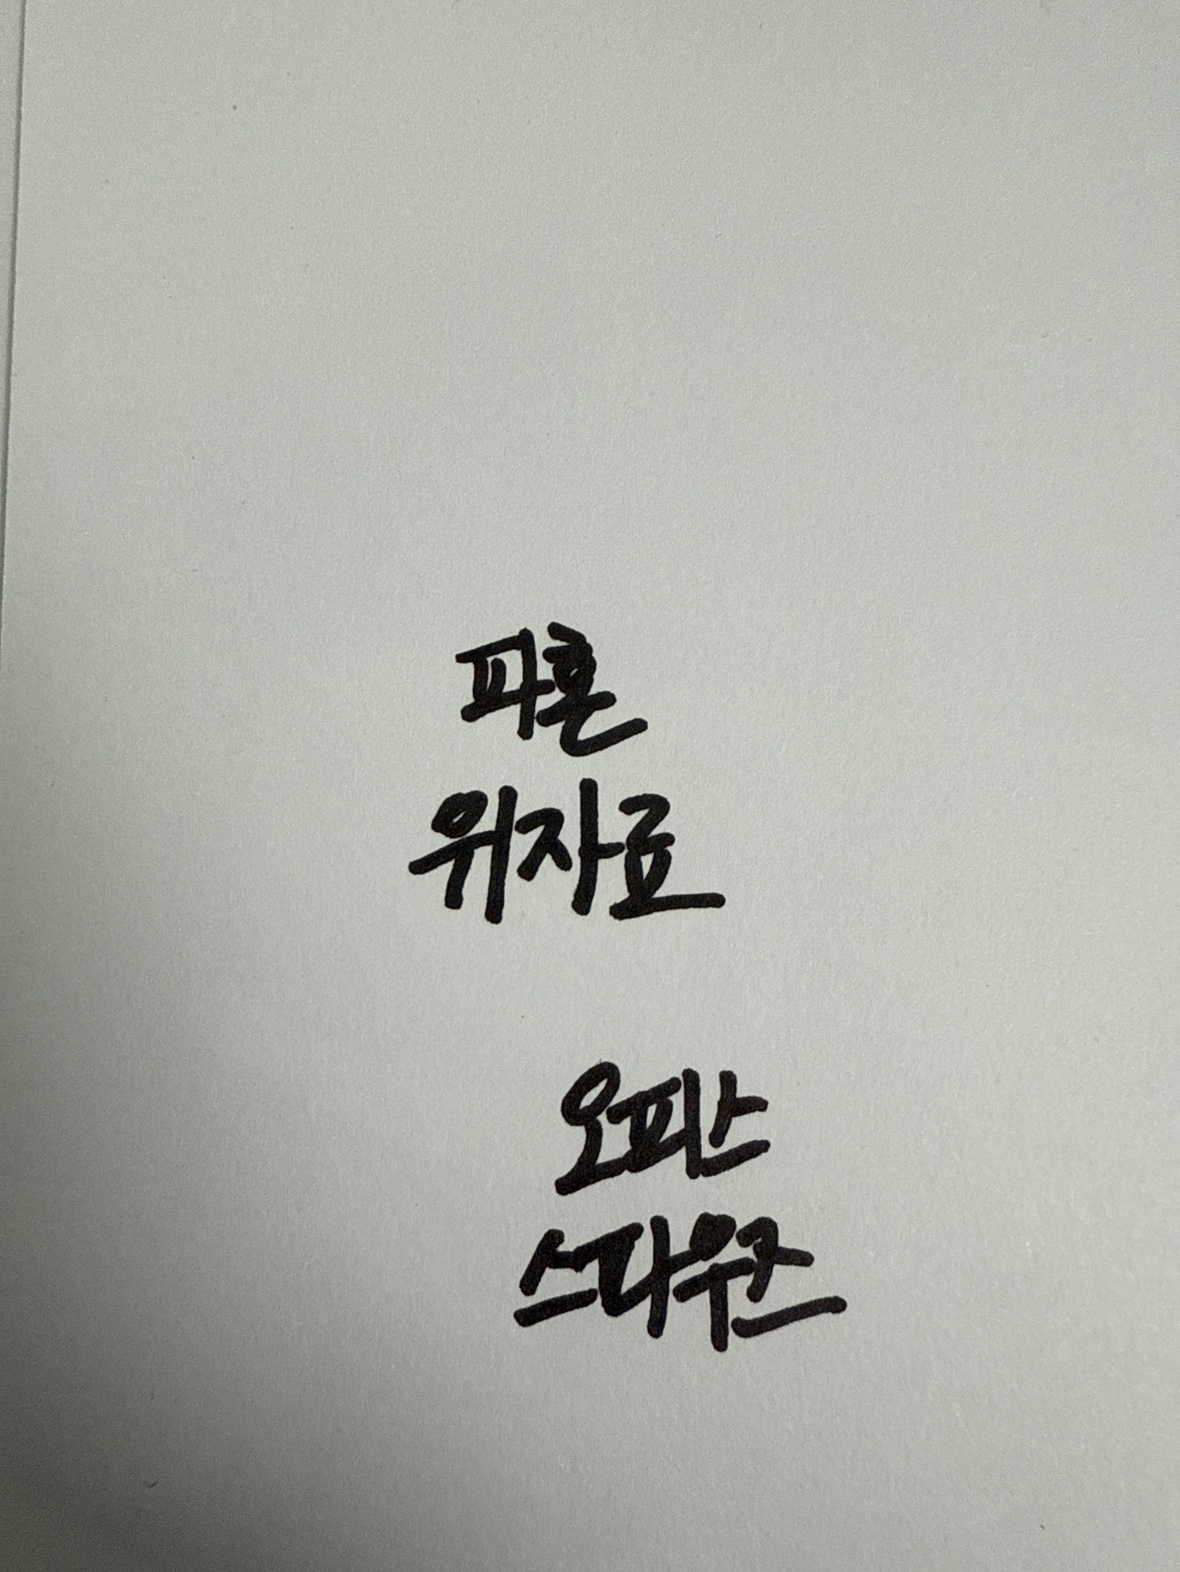 파혼
위자료
오피스
스타우즈